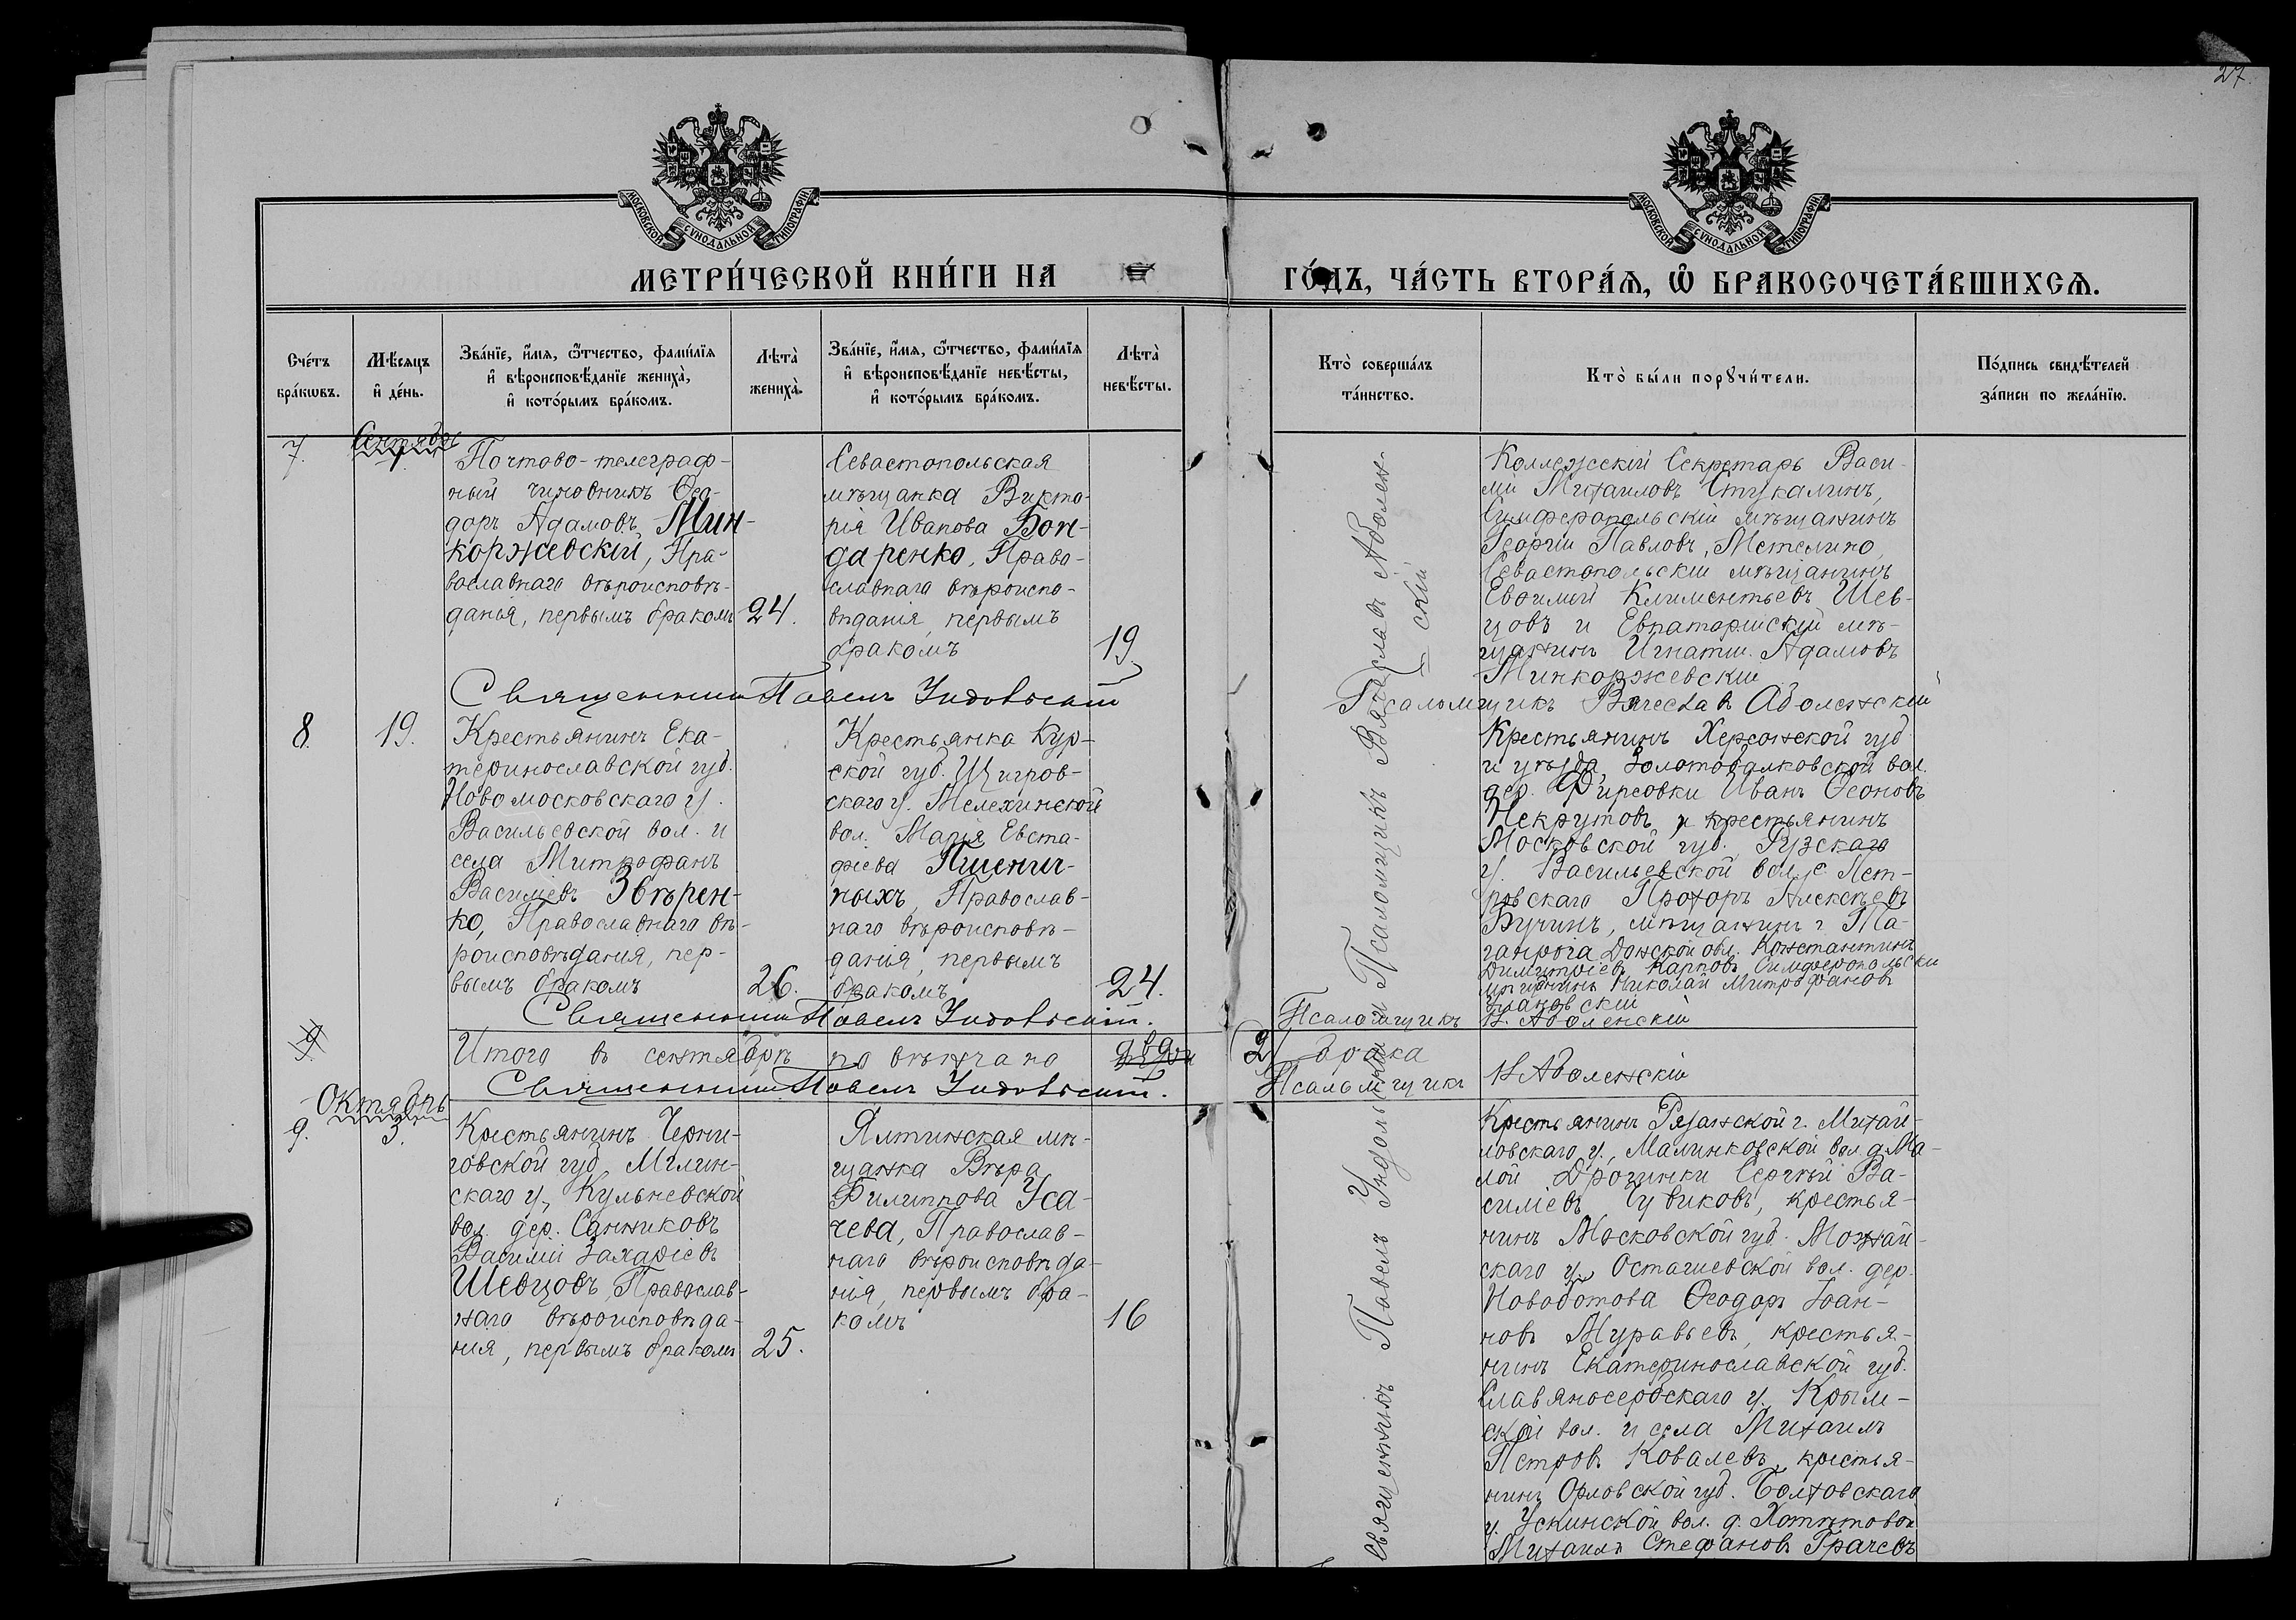 27
МОСКОВСКОЙ СУНОДАЛЬНОЙ ТИПОГРАФІИ
МОСКОВСКОЙ СУНОДАЛЬНОЙ ТИПОГРАФІИ
МЕТРИ́ЧЕСКОЙ КНИ́ГИ НА
ГО́ДЪ, ЧА́СТЬ ВТОРА́Ѧ, Ѽ БРАКОСОЧЕТА́ВШИХСѦ.
Сче́тъ бра́кωвъ.
Мѣ́сѧцъ и҆ де́нь.
Зва́нїе, и҆́мѧ, ѻ҆́тчество, фами́лїѧ и҆ вѣроисповѣ́данїе жениха̀, и҆ кото́рымъ бра́комъ.
Лѣта̀ жениха̀.
Зва́нїе, и҆́мѧ, ѻ҆́тчество, фами́лїѧ и҆ вѣроисповѣ́данїе невѣ́сты, и҆ кото́рымъ бра́комъ.
Лѣта̀ невѣ́сты.
Кто̀ соверша́лъ та́инство.
Кто̀ бы́ли порꙋчи́тели.
По́дпись свидѣ́телей за́писи по жела́нїю.
7.
Сентябрь
Почтово-телеграф-
ный чиновникъ Ѳео-
доръ Адамовъ Мин-
коржевскій, Пра-
вославнаго вѣроисповѣ-
данія, первымъ бракомъ
24.
Севастопольская
мѣщанка Викто-
рія Иванова Бон-
даренко, Право-
славнаго вѣроиспо-
вѣданія, первымъ
бракомъ
19.
Коллежскій Секретарь Васи-
лій Михаиловъ Стукалинъ,
Симферопольскій мѣщанинъ
Георгій Павловъ Метелино,
Севастопольскій мѣщанинъ
Евѳимій Климентьевъ Шев-
цовъ и Евпаторійскій мѣ-
щанинъ Игнатій Адамовъ
Минкоржевскій
Священникъ Павелъ Ундольскій
Псаломщикъ Вячеславъ Аболенскій
8.
19.
Крестьянинъ Ека-
теринославской губ.
Новомосковскаго у.
Васильевской вол. и
села Митрофанъ
Василіевъ Звѣрен-
ко, Православнаго вѣ-
роисповѣданія, пер-
вымъ бракомъ
26.
Крестьянка Кур-
ской губ. Щигров-
скаго у. Мелехинской
вол. Марія Евста-
фіева Пшенич-
ныхъ, Православ-
наго вѣроисповѣ-
данія, первымъ
бракомъ
24.
Крестьянинъ Херсонской губ.
и уѣзда, Золотобалковской вол.
дер. Фирсовки Иванъ Ѳеоновъ
Некрутовъ, и крестьянинъ
Московской губ. Рузскаго
у. Васильевской вол. с. Пет-
ровскаго Прохоръ Алексѣевъ
Бучинъ, мѣщанинъ г. Та-
ганрога Донской обл. Константинъ
Димитріевъ Карповъ Симферопольскій
мѣщанинъ Николай Митрофановъ
Священникъ Павелъ Ундольскій.
Псаломщикъ В. Аболенскій
9
Итого въ сентябрѣ повѣнчано два 2 брака
Священникъ Павелъ Ундольскій.
Псаломщикъ В. Аболенскій
Октябрь
9.
3.
Крестьянинъ Черни-
говской губ. Мглин-
скаго у., Кульневской
вол. дер. Санниковъ
Василій Захаріевъ
Шевцовъ, Православ-
наго вѣроисповѣда-
нія, первымъ бракомъ
25.
Ялтинская мѣ-
щанка Вѣра
Филиппова Уса-
чева, Православ-
наго вѣроисповѣда-
нія, первымъ бра-
комъ
16
Священникъ Павелъ Ундольскій Псаломщикъ Вячеславъ Аболен-
скій
Крестьянинъ Рязанской г. Михай-
ловскаго у., Малинковской вол. д. Ма-
лой Дрогинки Сергѣй Ва-
силіевъ Чувиковъ, крестья-
нинъ Московской губ. Можай-
скаго у. Осташевской вол. дер.
Новоботова Ѳеодоръ Іоан-
новъ Муравьевъ, крестья-
нинъ Екатеринославской губ.
Славяносербскаго у. Крым-
ской вол. и села Михаилъ
Петровъ Ковалевъ, крестья-
нинъ Орловской губ. Болховскаго
у. Ускинской вол. д. Хотѣтовой
Михаилъ Стефановъ Грачевъ